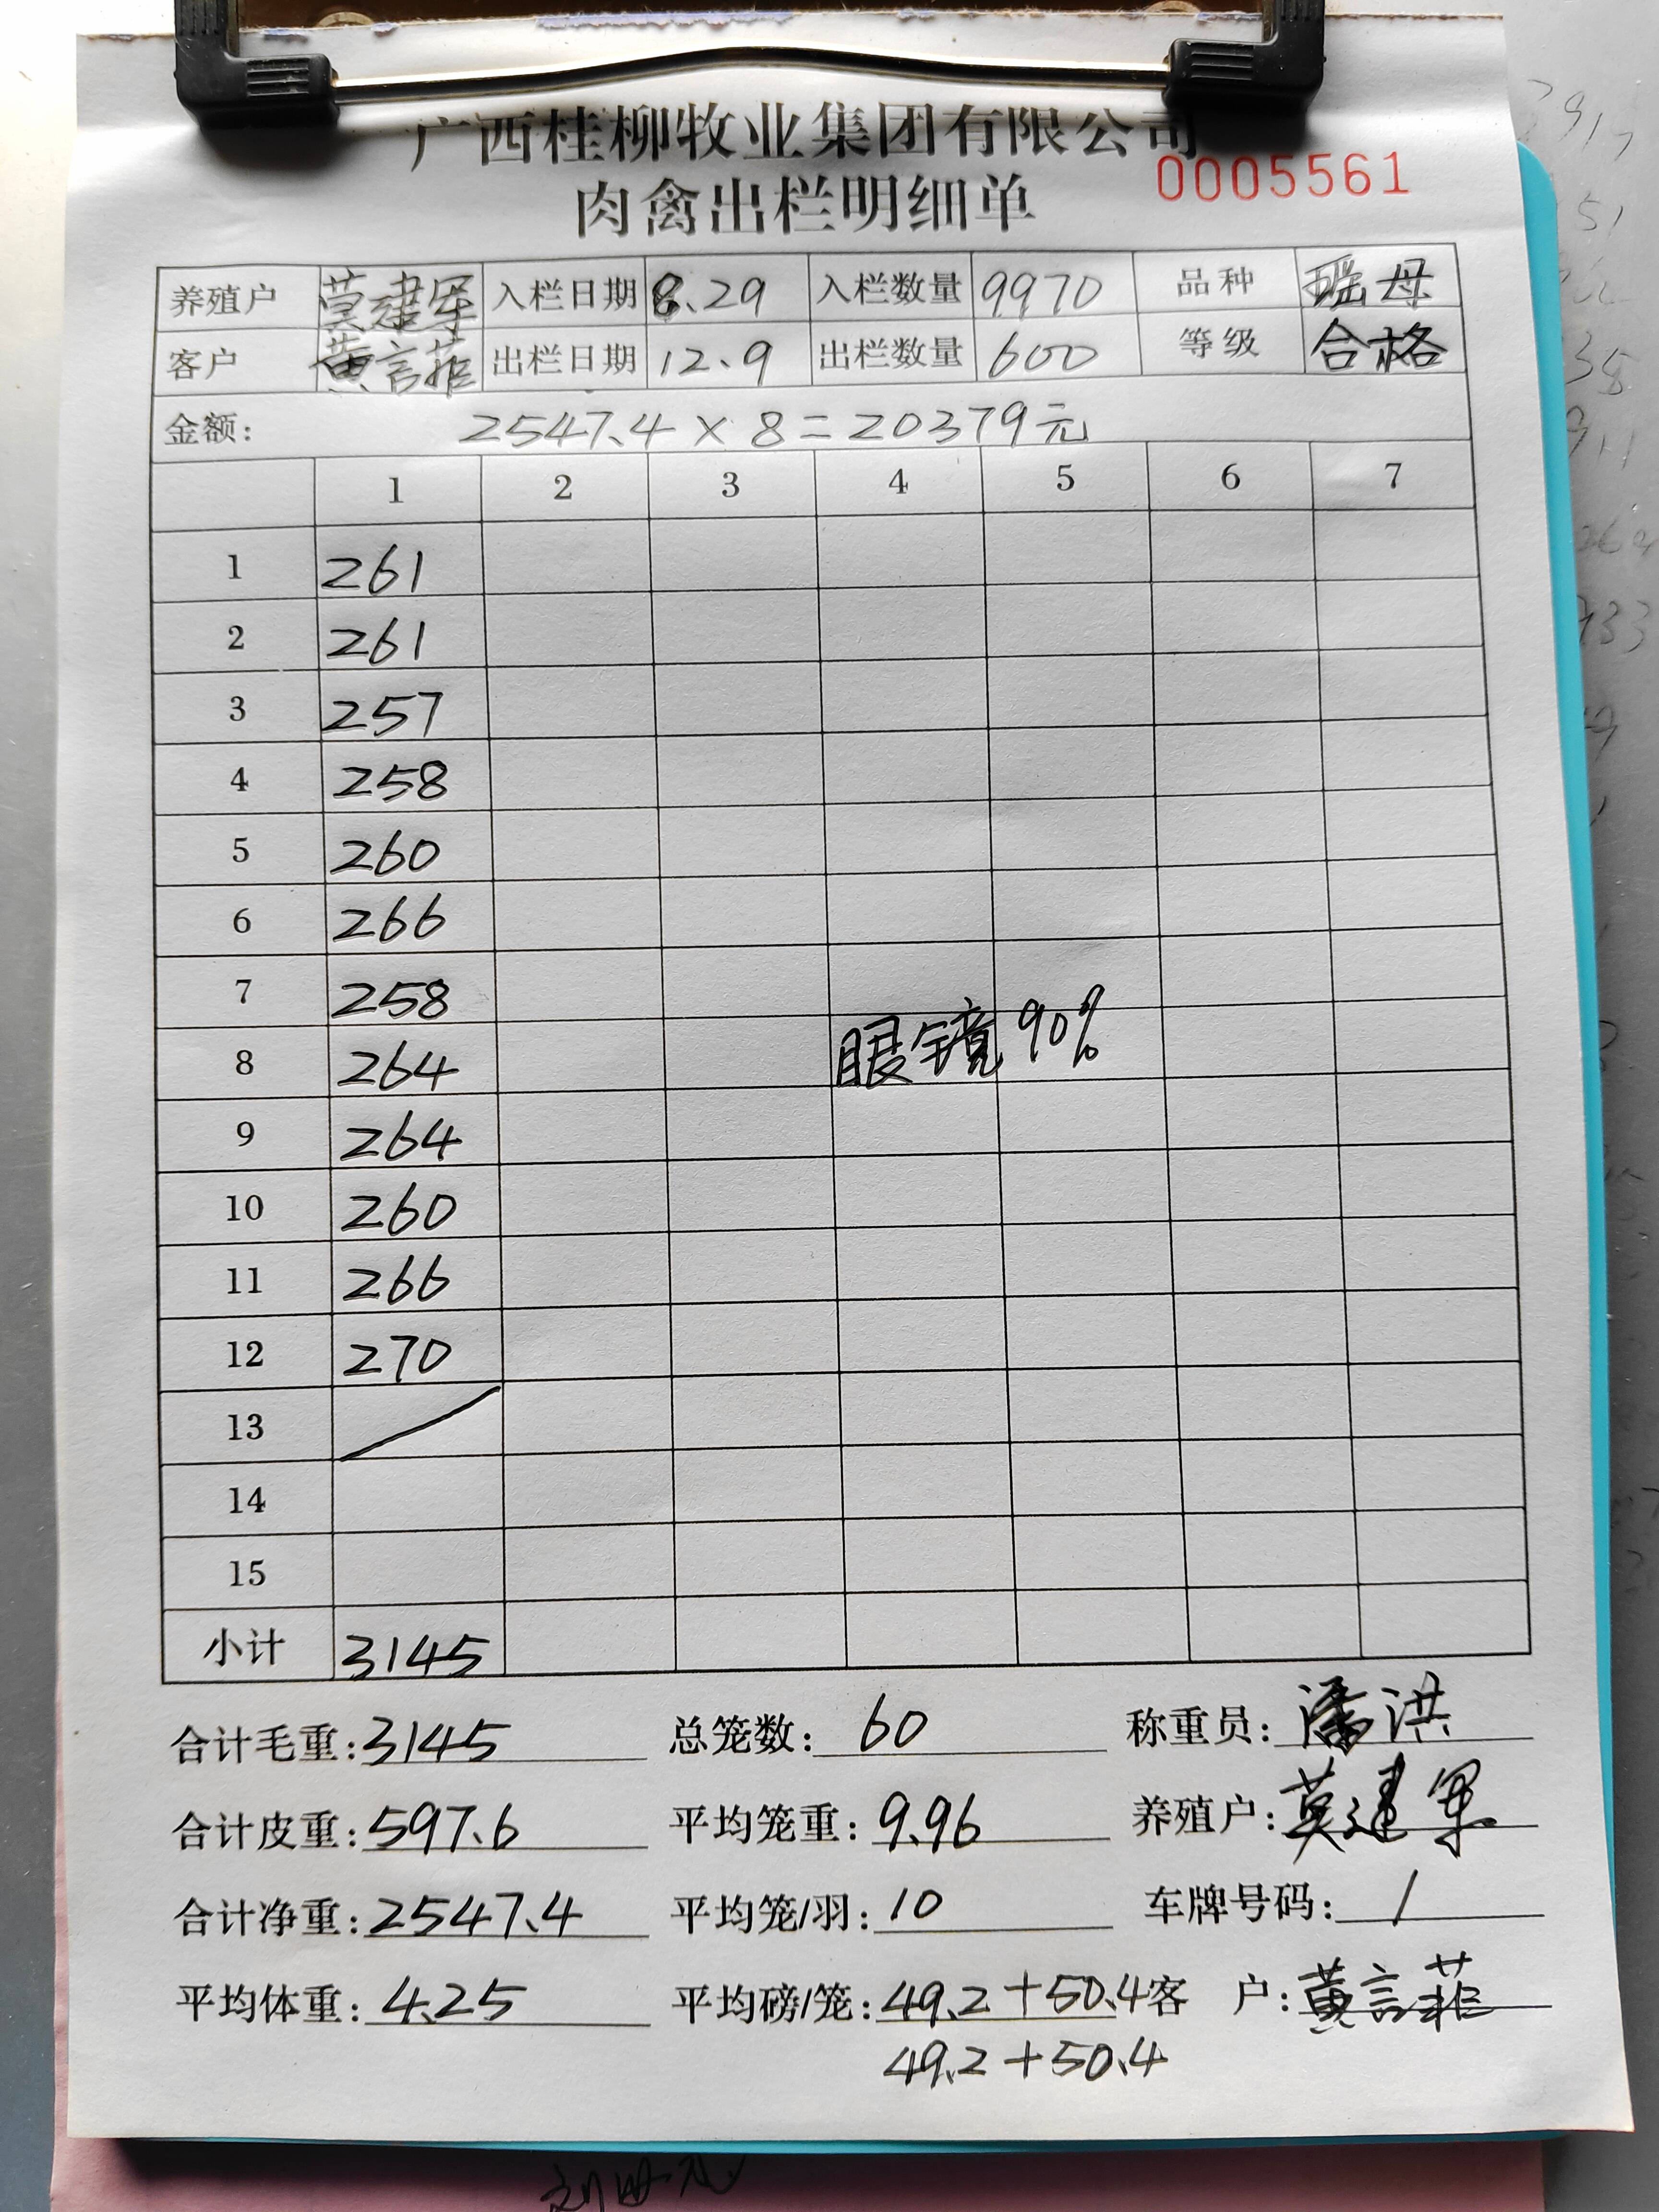 广西桂柳牧业集团有限公司
肉禽出栏明细单 0005561
养殖户 莫建军 入栏日期 8.29 入栏数量 9970 品种 瑶母
客户 黄言菲 出栏日期 12.9 出栏数量 600 等级 合格
金额: 2547.4×8=20379元
1 2 3 4 5 6 7
1 261
2 261
3 257
4 258
5 260
6 266
7 258
8 264 眼镜90%
9 264
10 260
11 266
12 270
13
14
15
小计 3145
合计毛重:3145 总笼数: 60 称重员: 潘洪
合计皮重:597.6 平均笼重: 9.96 养殖户:莫建军
合计净重:2547.4 平均笼/羽: 10 车牌号码: /
平均体重: 4.25 平均磅/笼: 49.2+50.4 客 户:黄言菲
49.2+50.4